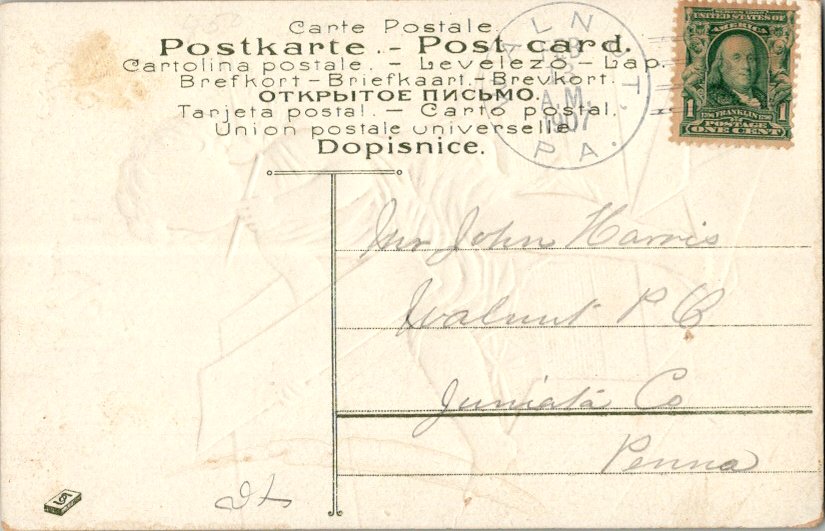 Carte Postale.
Postkarte. - Post card.
Cartolina postale. - Levelező - Lap.
Brefkort - Briefkaart. - Brevkort.
ОТКРЫТОЕ ПИСЬМО.
Tarjeta postal. - Carto postal.
Union postale universelle
Dopisnice.
WALNUT.
A.M.
1907
PA.
SERIES 1902
UNITED STATES OF
AMERICA
1 1706 FRANKLIN 1790 1
POSTAGE
ONE CENT
Mr John Harris
Walnut P O
Juniata Co
Penna